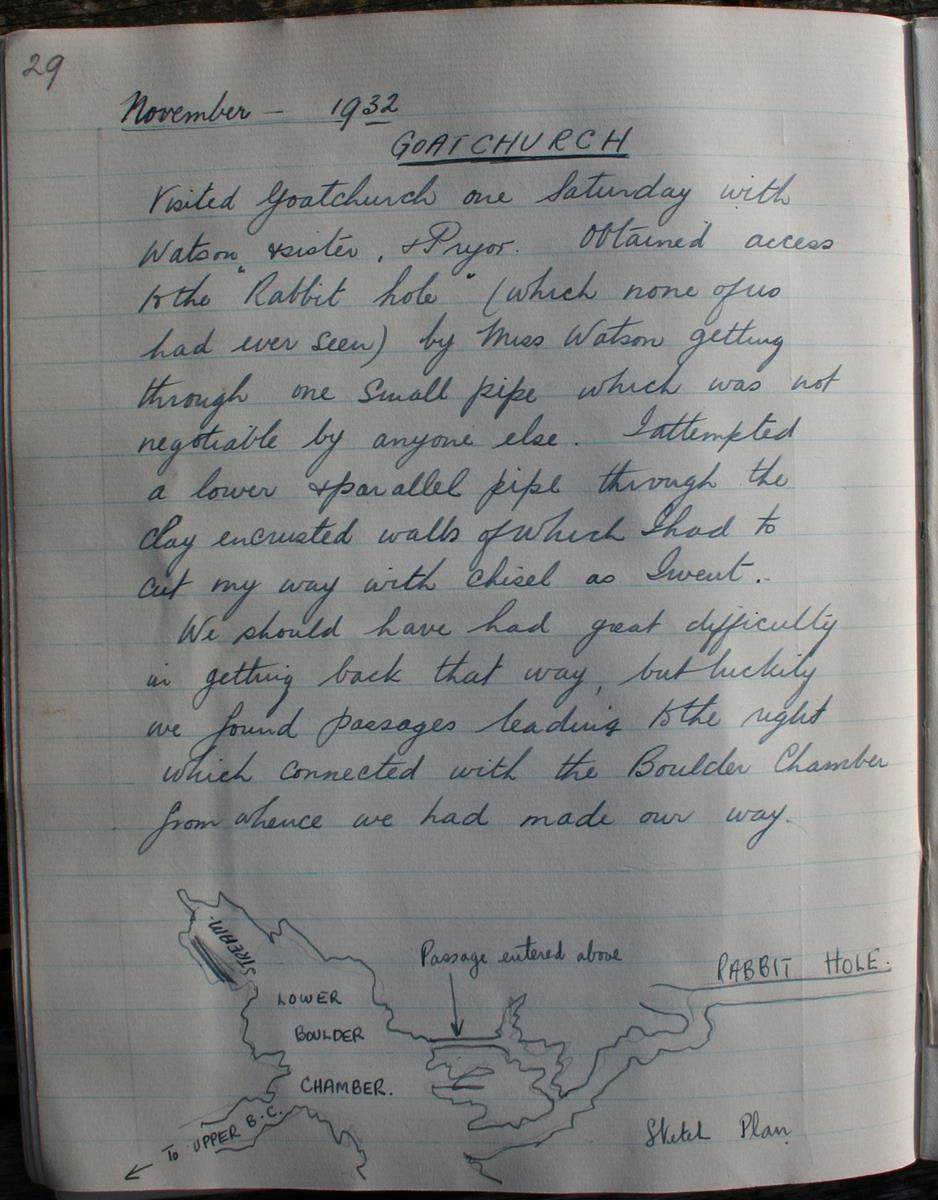 29
November - 1932
GOATCHURCH
Visited Goatchurch one Saturday with
Watson & sister, & Pryor. Obtained access
to the "Rabbit hole" (which none of us
had ever seen) by Miss Watson getting
through one small pipe which was not
negotiable by anyone else. I attempted
a lower & parallel pipe through the
clay encrusted walls of which I had to
cut my way with chisel as I went.
We should have had great difficulty
in getting back that way, but luckily
we found passages leading to the right
which connected with the Boulder Chamber
from whence we had made our way.
STREAM.
Passage entered above
RABBIT HOLE.
LOWER
BOULDER
CHAMBER.
To UPPER B.C.
Sketch Plan